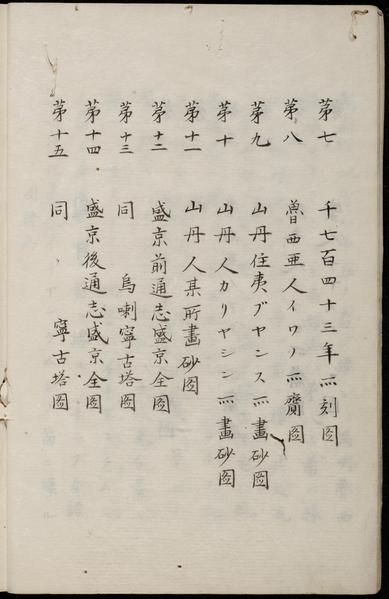 第七 千七百四十三年所刻図
第八 魯西亜人イワノ所齎図
第九 山丹住夷ブヤンス所畫砂図
第十 山丹人カリヤシン所畫砂図
第十一 山丹人某所畫砂図
第十二 盛京前通志盛京全図
第十三 同 烏喇寧古塔図
第十四 盛京後通志盛京全図
第十五 同 寧古塔図